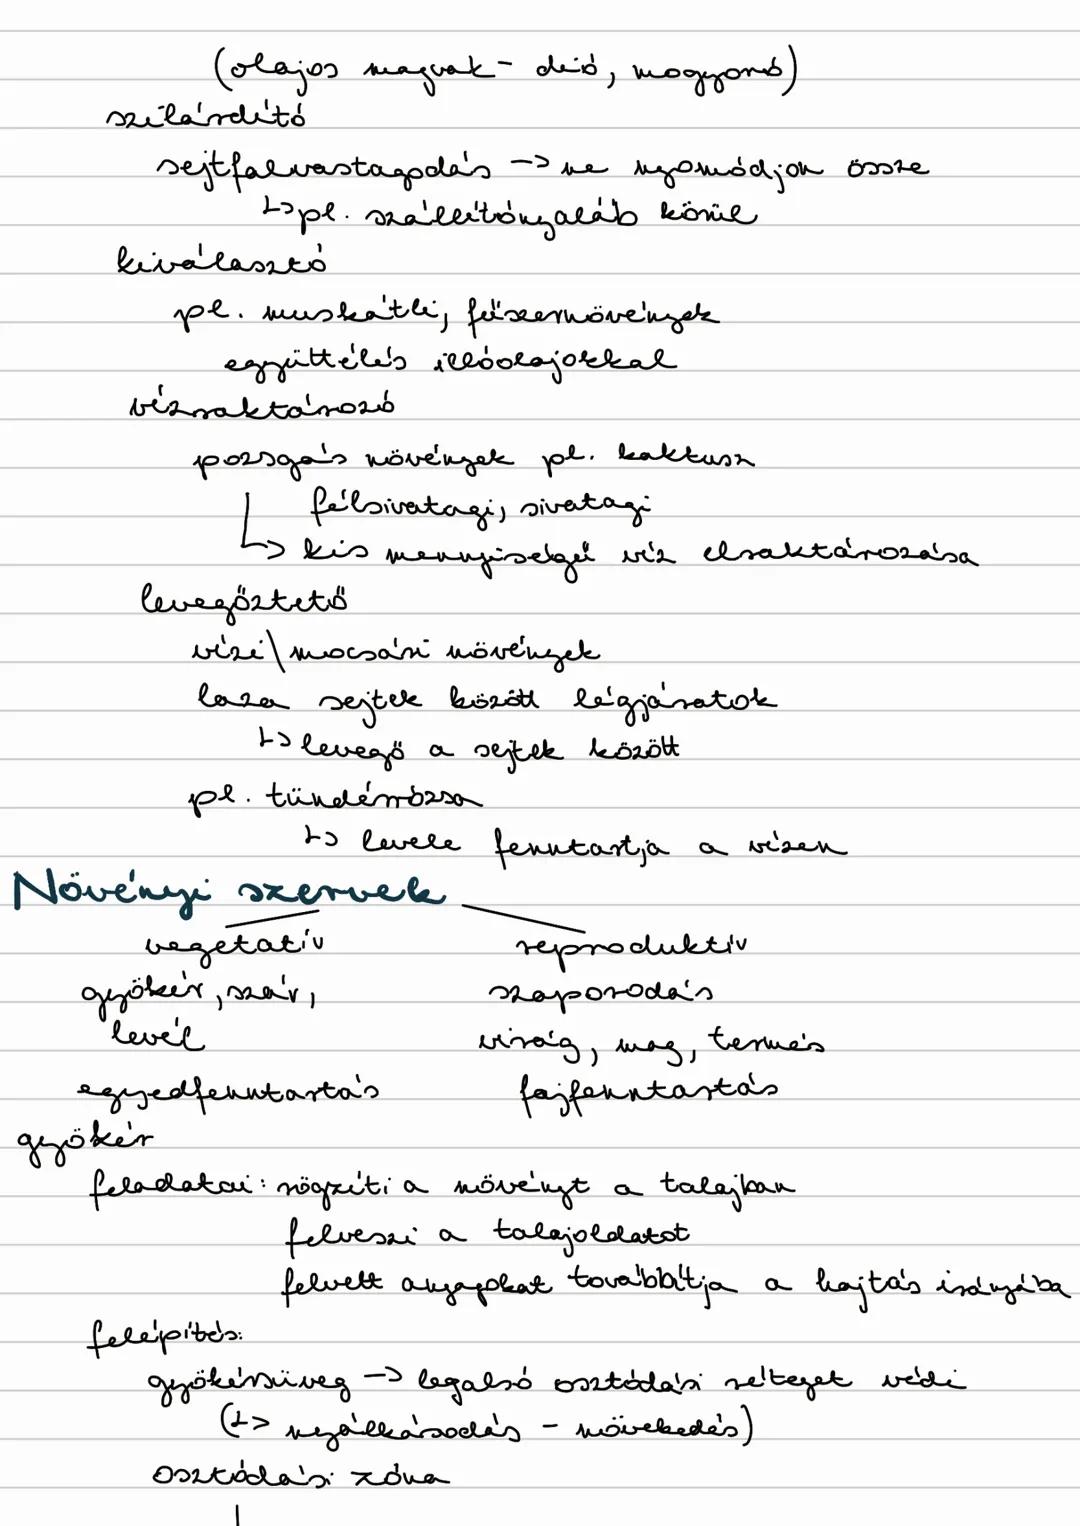 (olajos magvak - dió, mogyoró)
szilárdító
sejtfalvastagodás -> ne nyomódjon össze
↳ pl. szállítónyaláb körül
kiválasztó
pl. muskátli, fűszernövények
együttélés illóolajokkal
vízraktározó
pozsgás növények pl. kaktusz
félsivatagi, sivatagi
↳ kis mennyiségű víz elraktározása
levegőztető
vizi\mocsári növények
laza sejtek között légjáratok
↳ levegő a sejtek között
pl. tündérrózsa
↳ levele fenntartja a vízen
Növényi szervek
vegetatív reproduktív
gyökér, szár, szaporodás
levél virág, mag, termés
egyedfenntartás fajfenntartás
gyökér
feladatai: rögzíti a növényt a talajban
felveszi a talajoldatot
felvett anyagokat továbbítja a hajtás irányába
felépítés:
gyökérsüveg -> legalsó osztódási réteget védi
(↳ nyálkásodás - növekedés)
osztódási zóna